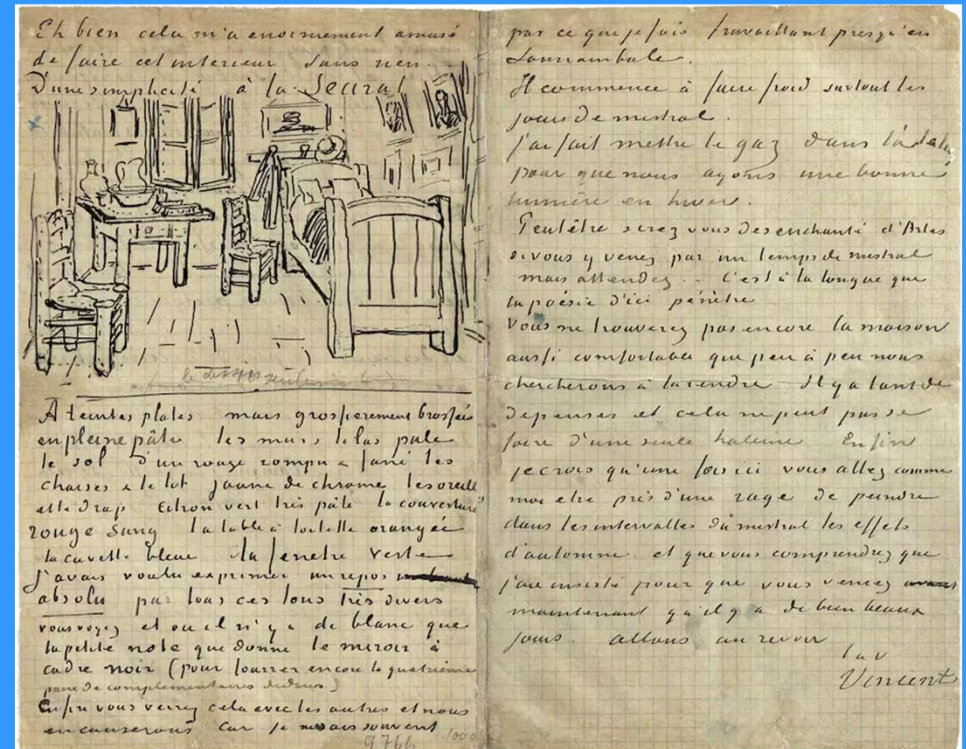 Eh bien cela m'a enormement amusé
de faire cet interieur sans rien
D'une simplicité à la Seurat
A teintes plates mais grossierement brossées
en pleine pâte les murs lilas pale
le sol d'un rouge rompu & fané les
chaises & le lit jaune de chrome les oreill
et le drap citron vert très pâle la couverture
rouge sang la table à toilette orangée
la cuvette bleue la fenetre verte
J'avais voulu exprimer un repos
absolu par tous ces tons très divers
vous voyez et où il n'y a de blanc que
la petite note que donne le miroir à
cadre noir (pour fourrer encore la quatrième
paire de complementaires dedans)
Enfin vous verrez cela avec les autres et nous
en causerons car je ne sais souvent
9766
par ce que je fais travaillant presqu'en
somnambule.
Il commence à faire froid surtout les
jours de mistral.
J'ai fait mettre le gaz dans
pour que nous ayons une bonne
lumière en hiver.
Peutêtre serez vous desenchanté d'Arles
si vous y venez par un temps de mistral
mais attendez.. C'est à la longue que
la poésie d'ici pénètre
Vous ne trouverez pas encore la maison
aussi comfortable que peu à peu nous
chercherons à la rendre Il y a tant de
depenses et cela ne peut pas se
faire d'une seule haleine Enfin
je crois qu'une fois ici vous allez comme
moi etre pris d'une rage de peindre
dans les intervalles du mistral les effets
d'automne. et que vous comprendrez que
j'aie insisté pour que vous veniez
maintenant qu'il y a de bien beaux
jours. allons au revoir
t.av.
Vincent